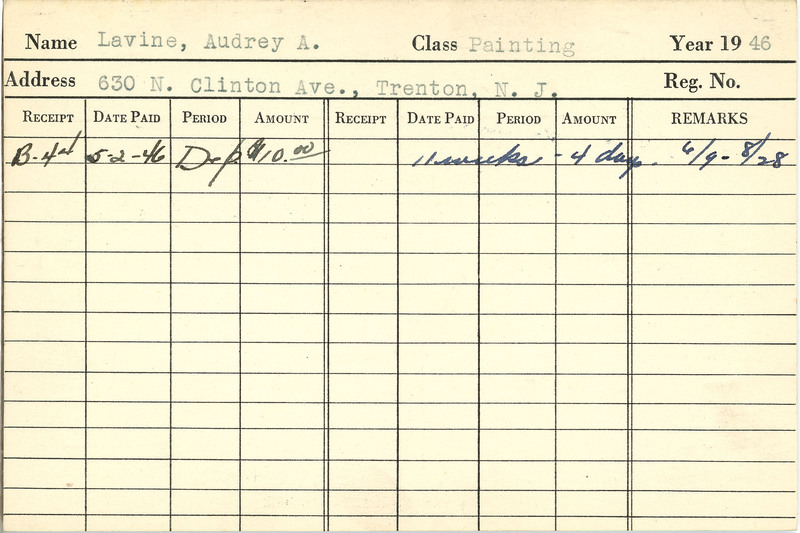 Name Lavine, Audrey A. Class Painting Year 19 46
Address 630 N. Clinton Ave., Trenton, N. J. Reg. No.
RECEIPT DATE PAID PERIOD AMOUNT RECEIPT DATE PAID PERIOD AMOUNT REMARKS
B-44 5-2-46 Dep $10.00 11 weeks - 4 days. 6/9 - 8/28